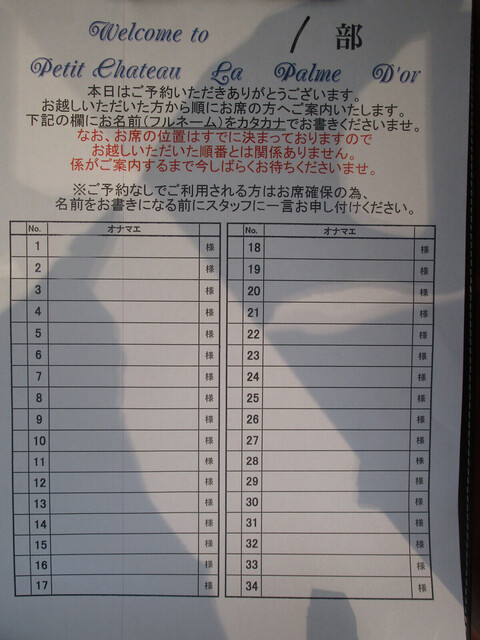 Welcome to 1 部
Petit Chateau La Palme D'or
本日はご予約いただきありがとうございます。
お越しいただいた方から順にお席の方へご案内いたします。
下記の欄にお名前(フルネーム)をカタカナでお書きくださいませ。
なお、お席の位置はすでに決まっておりますので
お越しいただいた順番とは関係ありません。
係がご案内するまで今しばらくお待ちくださいませ。
※ご予約なしでご利用される方はお席確保の為、
名前をお書きになる前にスタッフに一言お申し付けください。
No. オナマエ
1 様
2 様
3 様
4 様
5 様
6 様
7 様
8 様
9 様
10 様
11 様
12 様
13 様
14 様
15 様
16 様
17 様
No. オナマエ
18 様
19 様
20 様
21 様
22 様
23 様
24 様
25 様
26 様
27 様
28 様
29 様
30 様
31 様
32 様
33 様
34 様